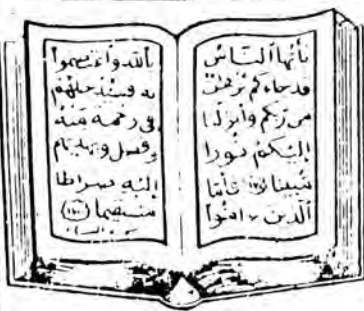 يأيها الناس
قد جاءكم برهان
من ربكم وأنزلنا
إليكم نورا
مبينا فأما
الذين ءامنوا
بالله واعتصموا
به فسيدخلهم
في رحمة منه
وفضل ويهديهم
إليه صراطا
مستقيما (١٧٥)